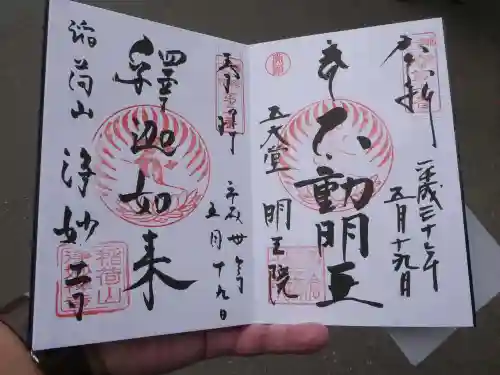 奉拝
平成三十年
五月十九日
不動明王
五大堂
明王院
奉拝
平成卅年
五月十九日
釋迦如来
稲荷山
浄妙寺
稲荷山
浄妙寺